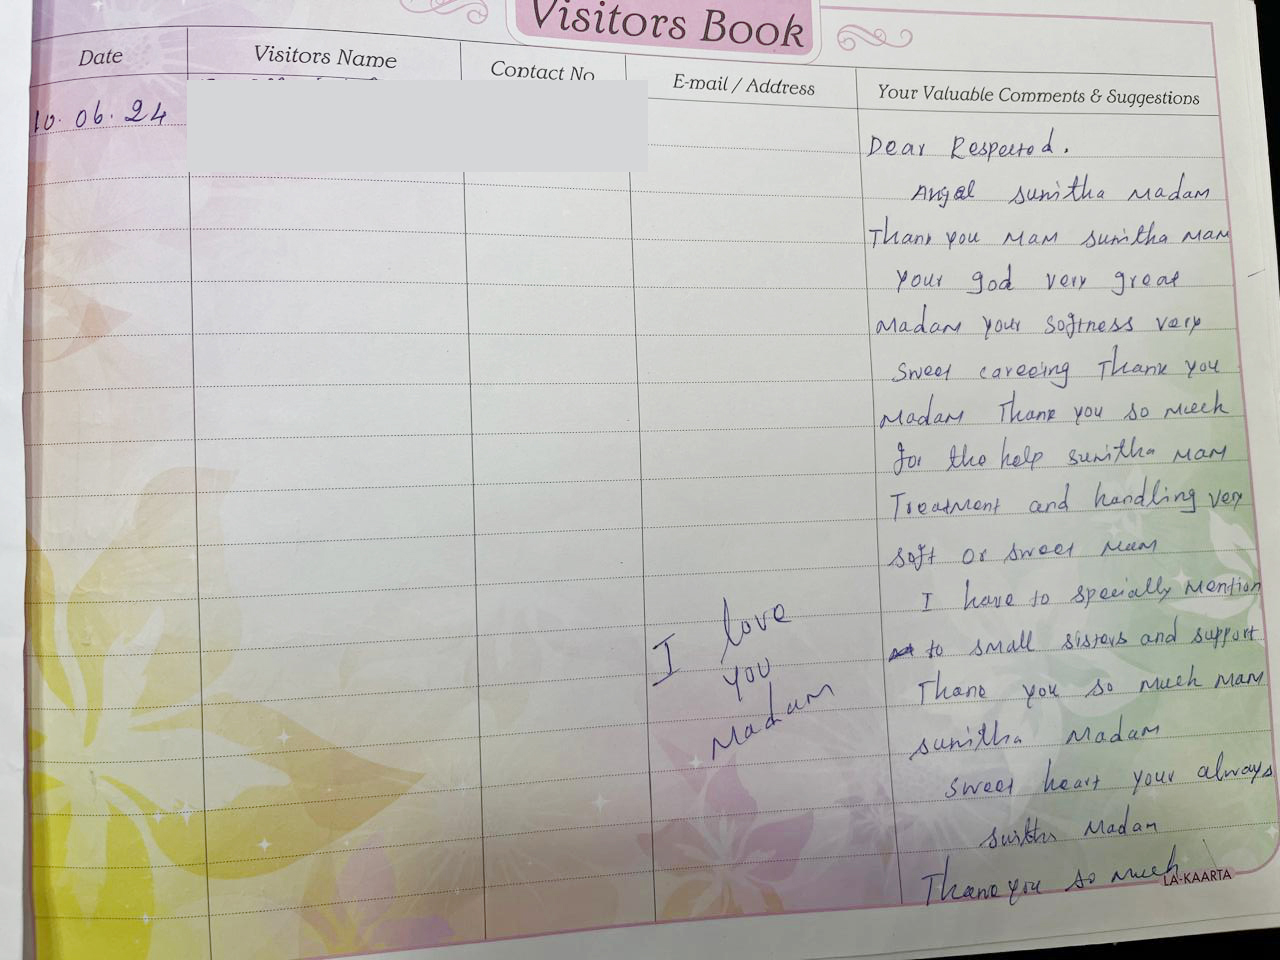 Visitors Book
Date
Visitors Name
Contact No
E-mail / Address
Your Valuable Comments & Suggestions
10.06.24
Dear Respected.
Angel sunitha Madam
Thank you MAM sunitha MAM
Your god very great
Madam your softness very
Sweet careeing Thank you
Madam Thank you so much
for the help sunitha MAM
Treatment and handling very
soft or sweet Mam
I have to specially Mention
to small sisters and support
Thank you so much MAM
sunitha Madam
Sweet heart your always
Madam
Thank you so much
I love
you
Madam
LA-KAARTA